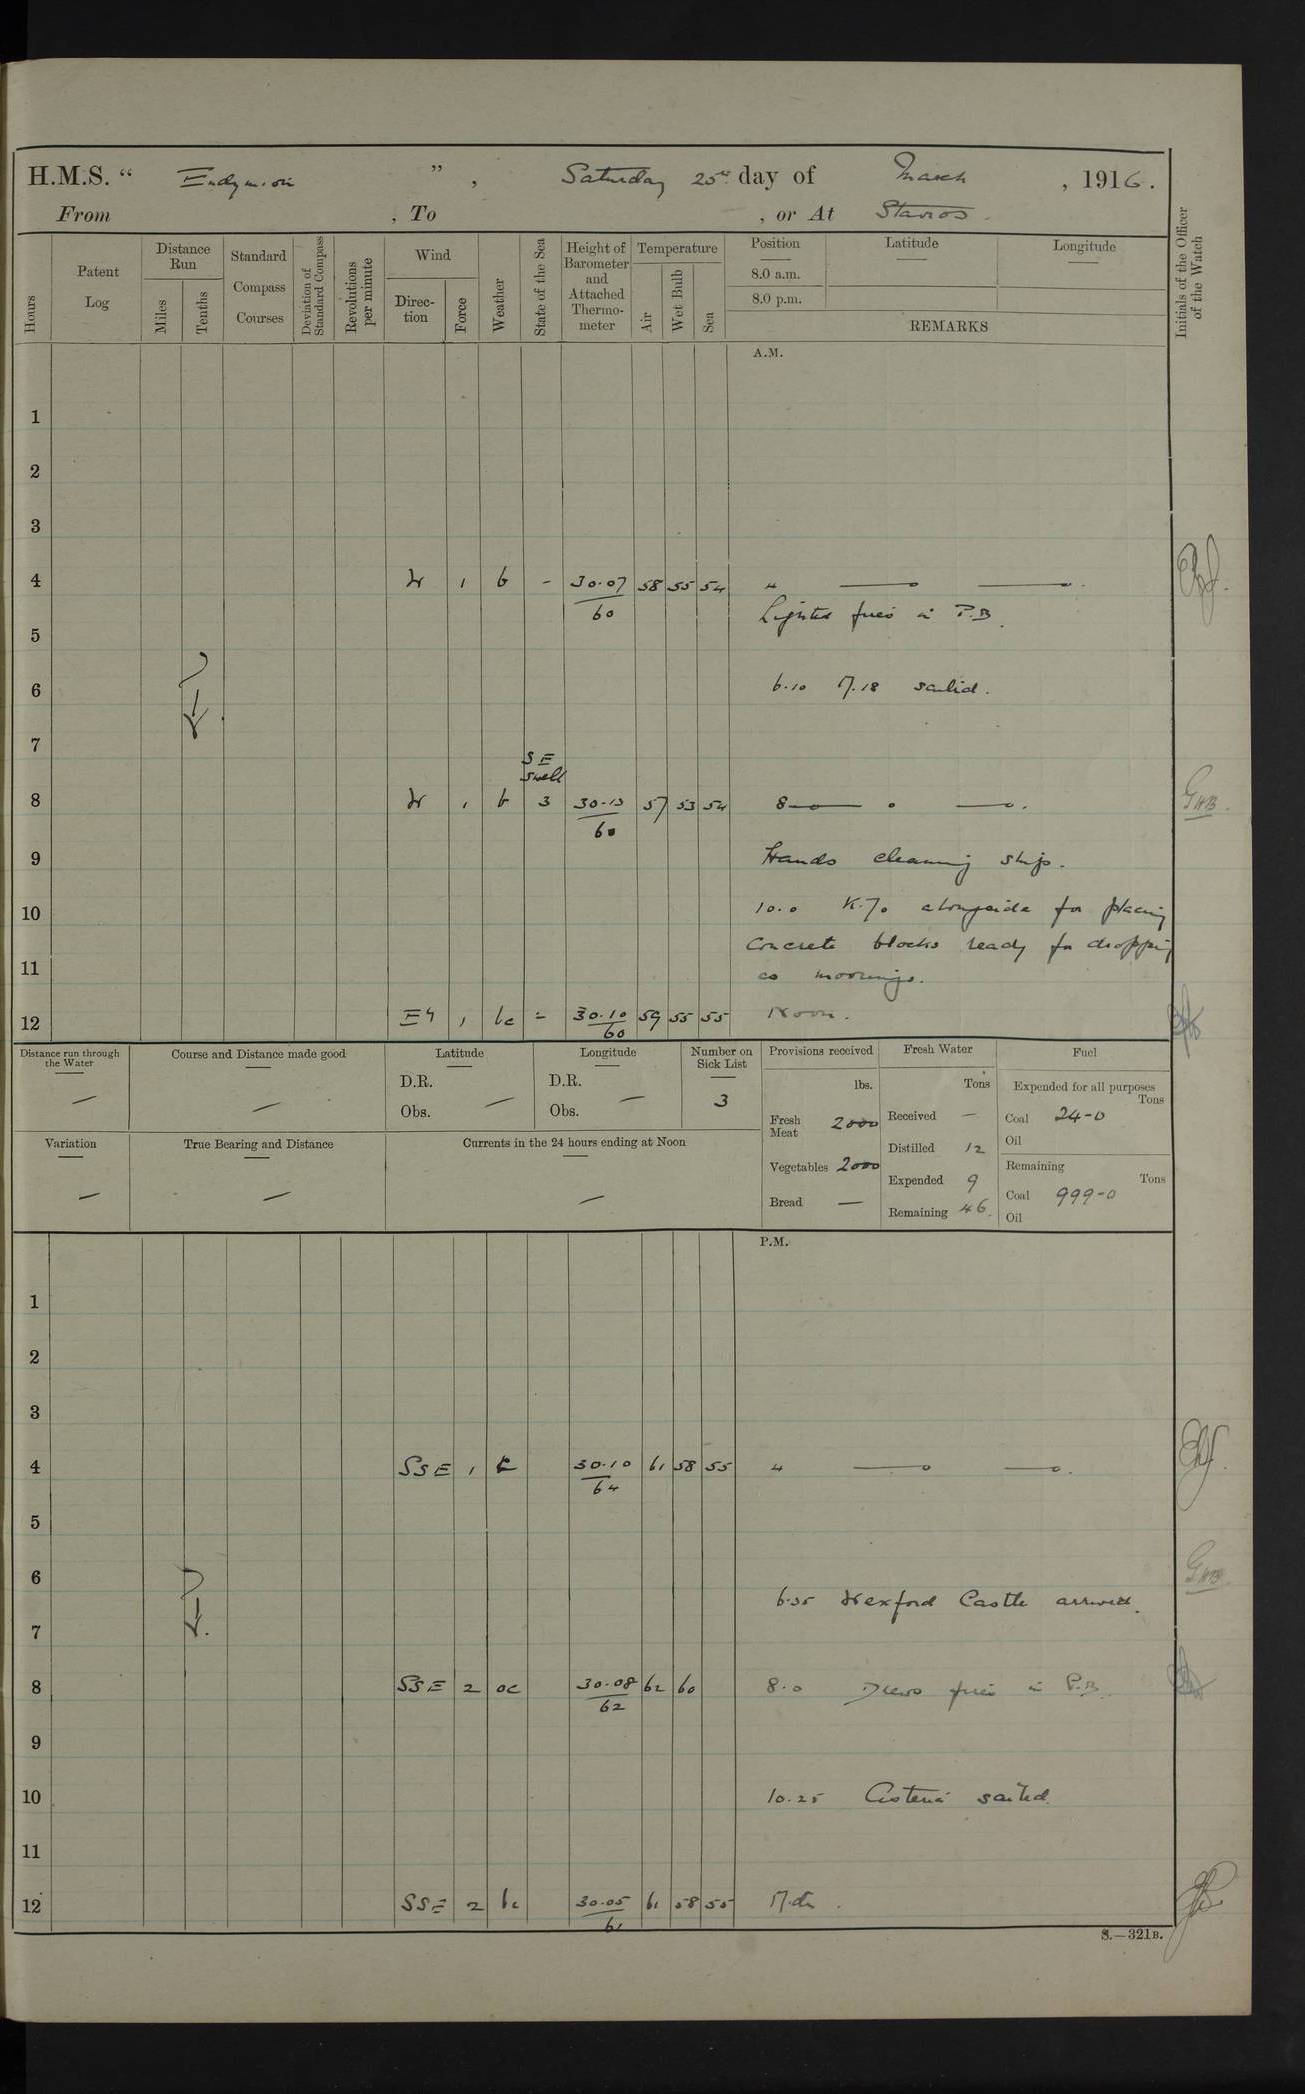 H.M.S. “ Endymion ”, Saturday 25th day of March, 1916.
From , To , or At Stavros.
Hours
Patent Log
Distance Run
Miles
Tenths
Standard Compass Courses
Deviation of Standard Compass
Revolutions per minute
Wind
Direction
Force
Weather
State of the Sea
Height of Barometer and Attached Thermometer
Temperature
Air
Wet Bulb
Sea
Position
8.0 a.m.
8.0 p.m.
Latitude
Longitude
REMARKS
Initials of the Officer of the Watch
A.M.
1
2
3
4 W 1 b – 30.07 58 55 54 4
60
Lighted fires in P.B.
5
6 6.10 M.18 sailed.
7
SE
swell
8 W 1 b 3 30.13 57 53 54 8
60
9 Hands cleaning ship.
10 10.0 K.70 alongside for placing
concrete blocks ready for dropping
11 as moorings.
12 1 bc 30.10 59 55 55 Noon.
60
Distance run through the Water
—
Course and Distance made good
—
Latitude
D.R.
Obs. —
Longitude
D.R.
Obs. —
Number on Sick List
3
Provisions received
lbs.
Fresh Meat 2000
Vegetables 2000
Bread —
Fresh Water
Tons
Received —
Distilled 12
Expended 9
Remaining 46
Fuel
Expended for all purposes
Tons
Coal 24-0
Oil
Remaining
Tons
Coal 999-0
Oil
Variation
—
True Bearing and Distance
—
Currents in the 24 hours ending at Noon
—
P.M.
1
2
3
4 SSE 1 30.10 61 58 55 4
64
5
6
6.35 Wexford Castle arrived.
7
8 SSE 2 oc 30.08 62 60 8.0 Drew fires in P.B.
62
9
10 10.25 sailed.
11
12 SSE 2 bc 30.05 61 58 55
61
S.—321B.